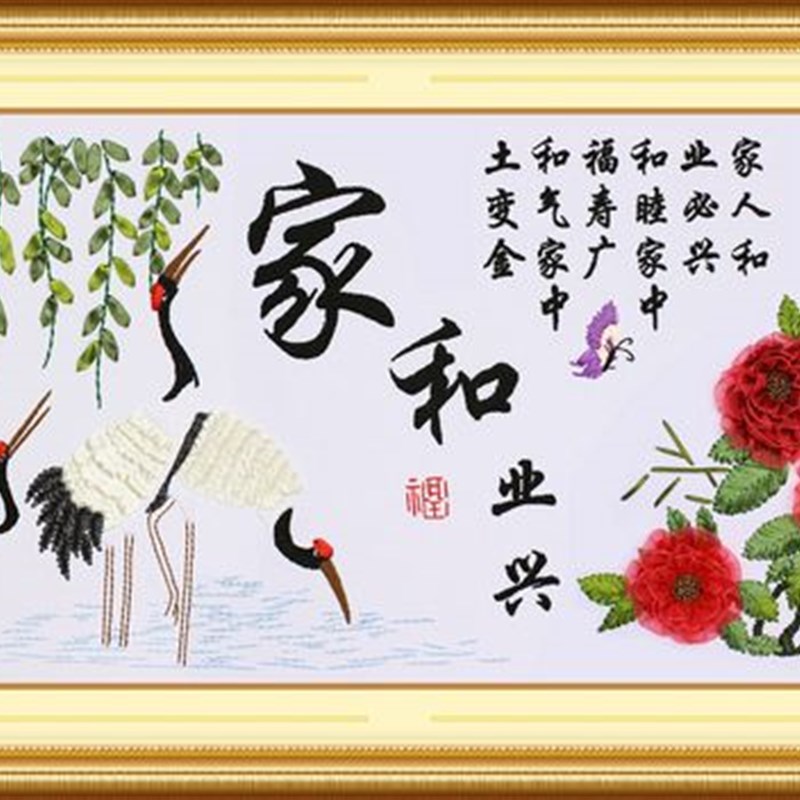 家和业兴
家人和
业必兴
和睦家中
福寿广
和气家中
土变金
福